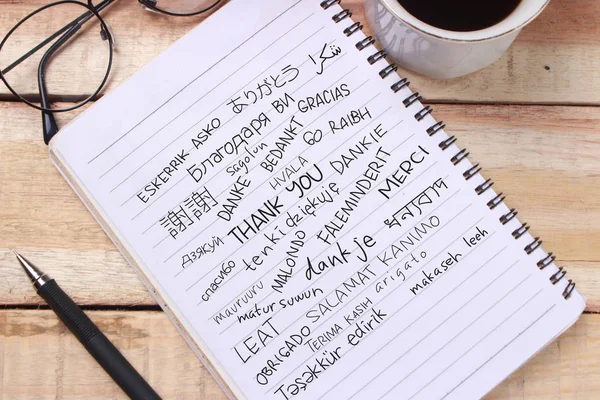 ありがとう شكرا
ESKERRIK ASKO Благодаря ВИ GRACIAS
Sagolun BEDANKT GO RAIBH
謝謝 DANKE HVALA DANKIE
THANK YOU dziękuję FALEMINDERIT MERCI
Дзякуй tenki
спасибо MALONDO dankje ধন্যবাদ
mauruuru matur suwun SALAMAT KANIMO
LEAT TERIMA KASIH arigato makaseh leeh
OBRIGADO
Təşəkkür edirik